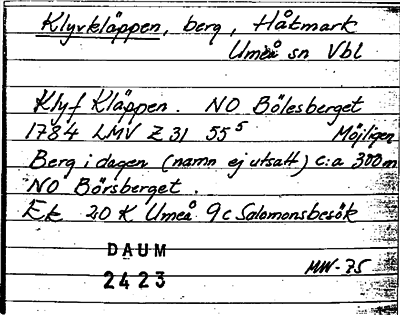 Klyvkläppen, berg, Håkmark
Umeå sn Vbl
Klyf Kläppen. NO Bölesberget
1784 LMV Z 31 55⁵ Möjligen
Berg i dagen (namn ej utsatt) c:a 300 m
NO Börsberget.
Ek 20 K Umeå 9c Salomonsbesök
DAUM
2423
MW-75